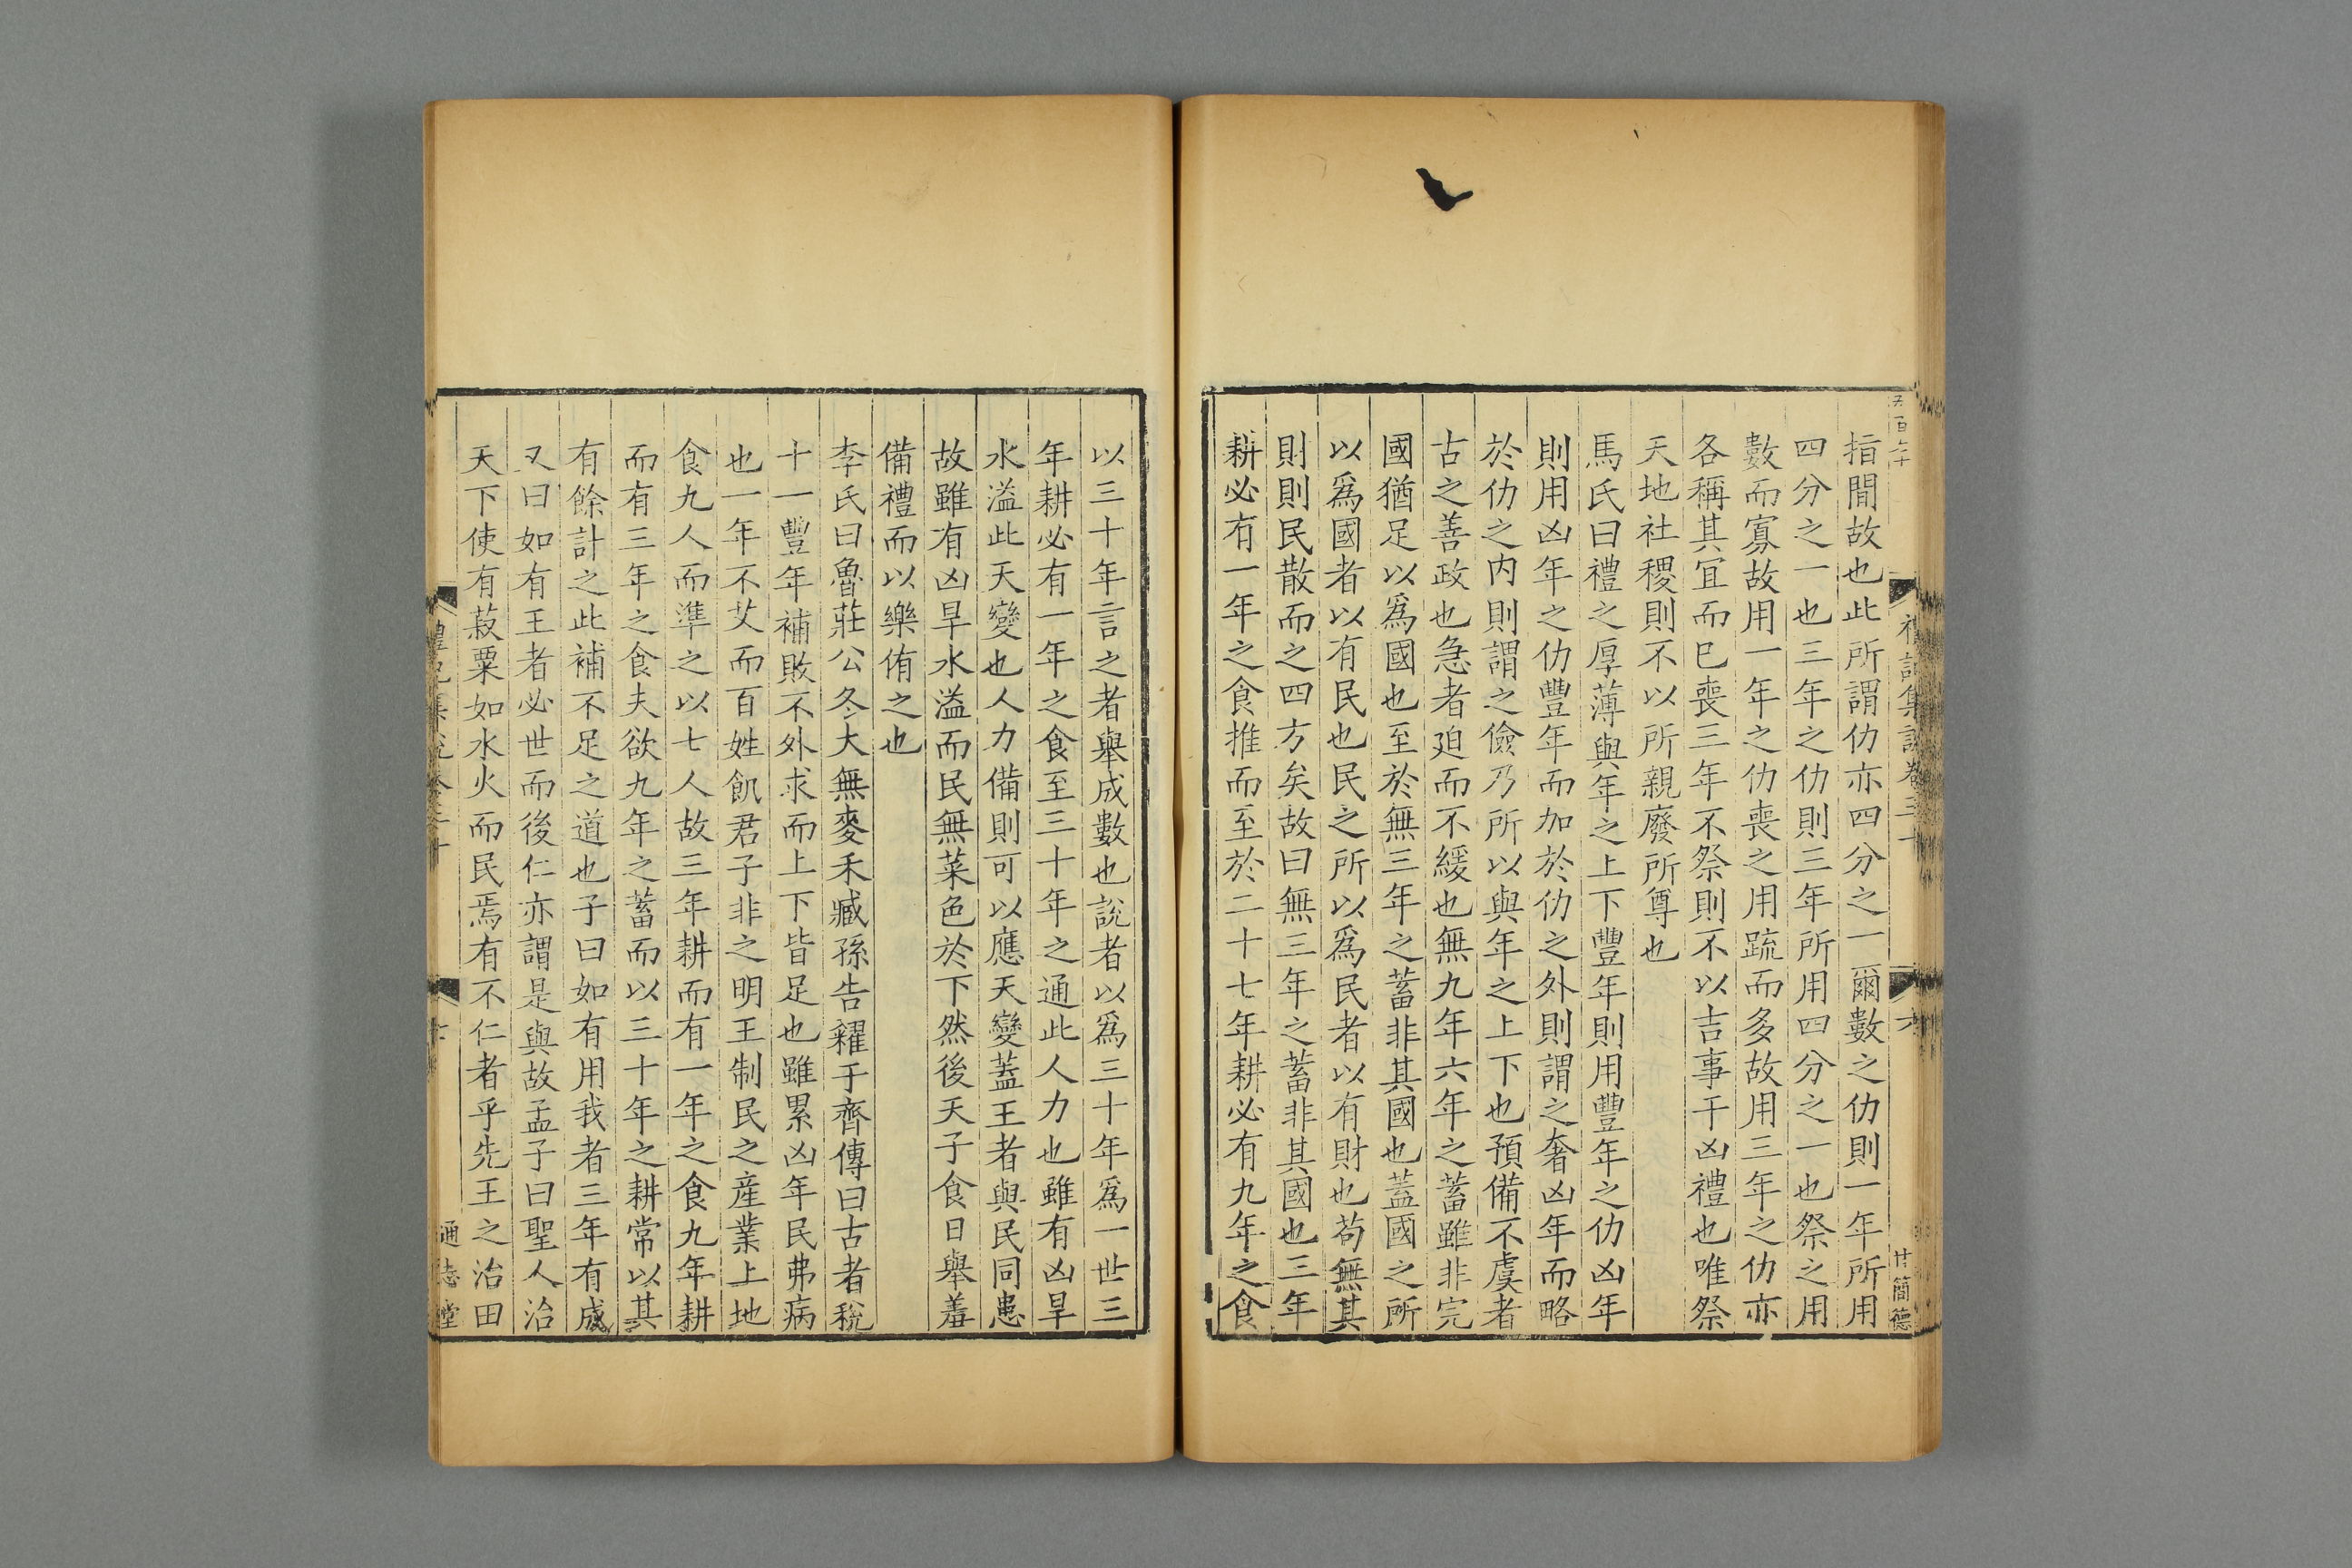 指間故也此所謂仂亦四分之一爾數之仂則一年所用
四分之一也三年之仂則三年所用四分之一也祭之用
數而寡故用一年之仂喪之用䟽而多故用三年之仂亦
各稱其宜而已喪三年不祭則不以吉事干凶禮也唯祭
天地社稷則不以所親廢所尊也
馬氏曰禮之厚薄與年之上下豐年則用豐年之仂凶年
則用凶年之仂豐年而加於仂之外則謂之奢凶年而略
於仂之内則謂之儉乃所以與年之上下也預備不虞者
古之善政也急者廹而不緩也無九年六年之蓄雖非完
國猶足以爲國也至於無三年之蓄非其國也蓋國之所
以爲國者以有民也民之所以爲民者以有財也茍無其
財則民散而之四方矣故曰無三年之蓄非其國也三年
耕必有一年之食推而至於二十七年耕必有九年之食
以三十年言之者舉成數也說者以爲三十年爲一世三
年耕必有一年之食至三十年之通此人力也雖有凶旱
水溢此天變也人力備則可以應天變蓋王者與民同患
故雖有凶旱水溢而民無菜色於下然後天子食日舉羞
備禮而以樂侑之也
李氏曰魯莊公冬大無麥禾臧孫告糴于齊傳曰古者稅
十一豐年補敗不外求而上下皆足也雖累凶年民弗病
也一年不艾而百姓飢君子非之明王制民之産業上地
食九人而準之以七人故三年耕而有一年之食九年耕
而有三年之食夫欲九年之蓄而以三十年之耕常以其
有餘計之此補不足之道也子曰如有用我者三年有成
又曰如有王者必世而後仁亦謂是與故孟子曰聖人治
天下使有菽粟如水火而民焉有不仁者乎先王之治田
通志堂